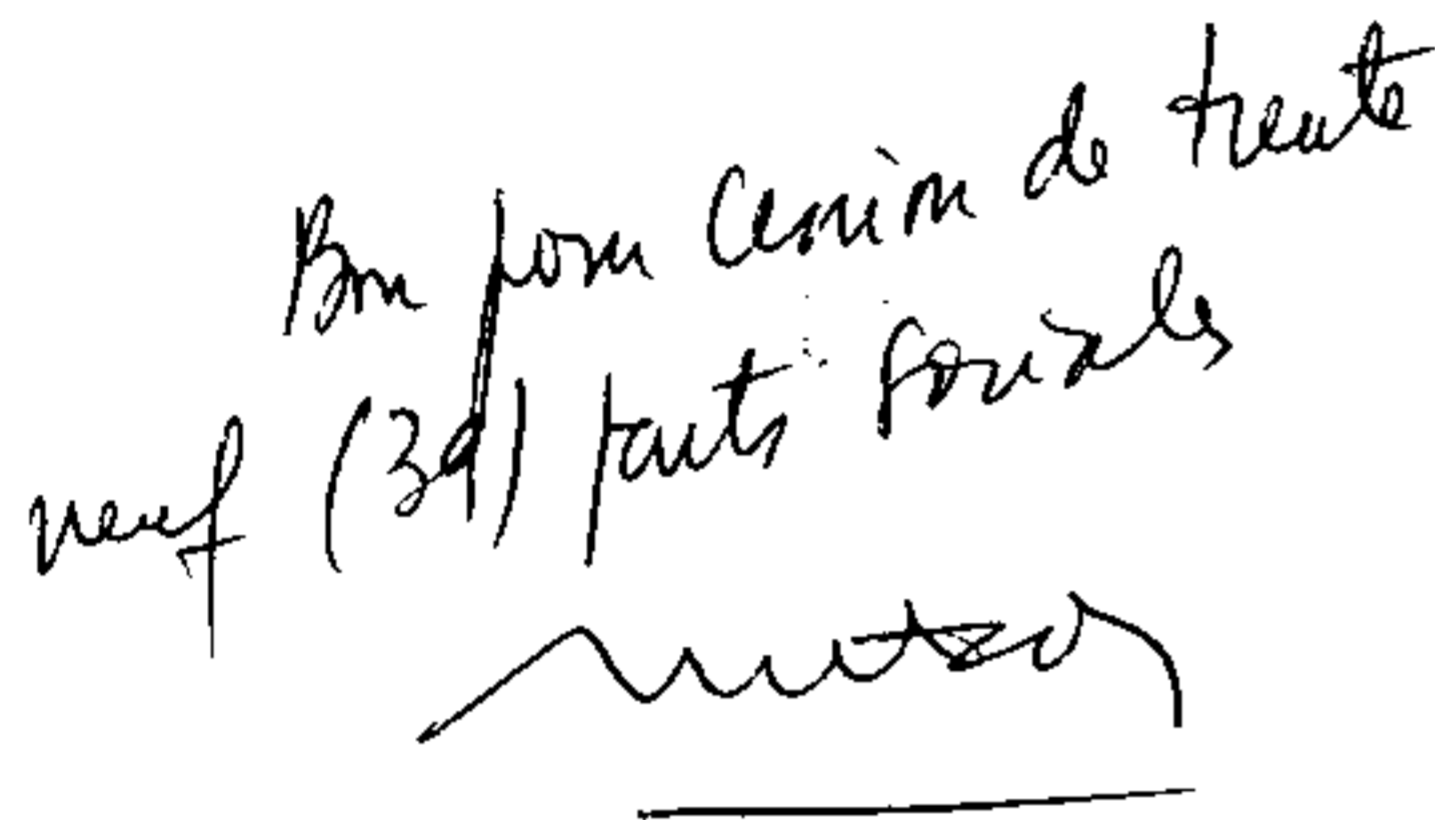 Bon pour Cession de trente
neuf (39) parts sociales